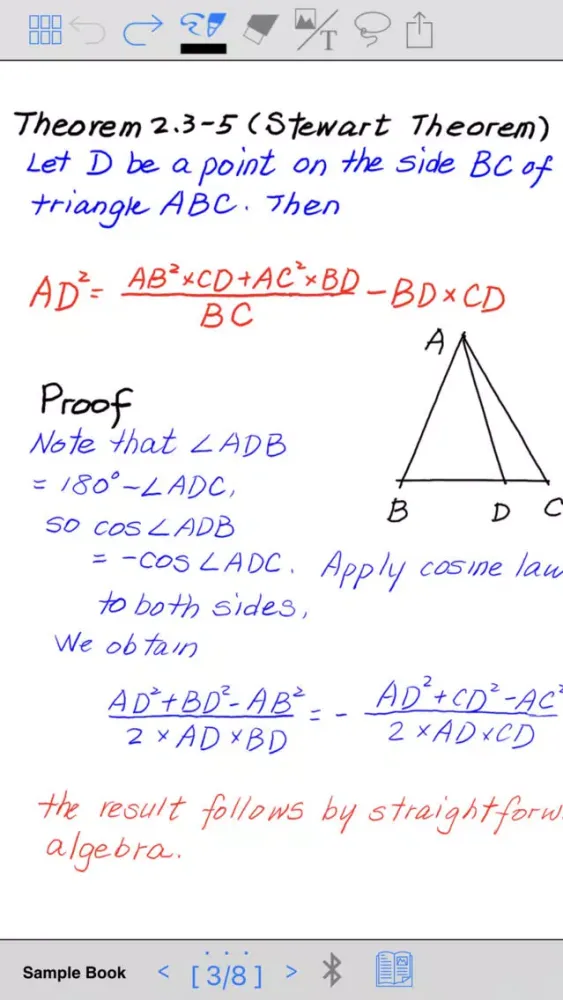 Theorem 2.3-5 (Stewart Theorem)
Let D be a point on the side BC of
triangle ABC. Then
AD² = (AB²×CD+AC²×BD)/BC − BD×CD
A
B D C
Proof
Note that ∠ADB
= 180° − ∠ADC,
so cos∠ADB
= −cos∠ADC. Apply cosine law
to both sides,
We obtain
(AD²+BD²−AB²)/(2×AD×BD) = − (AD²+CD²−AC²)/(2×AD×CD)
the result follows by straightforw
algebra.
Sample Book < [3/8] >